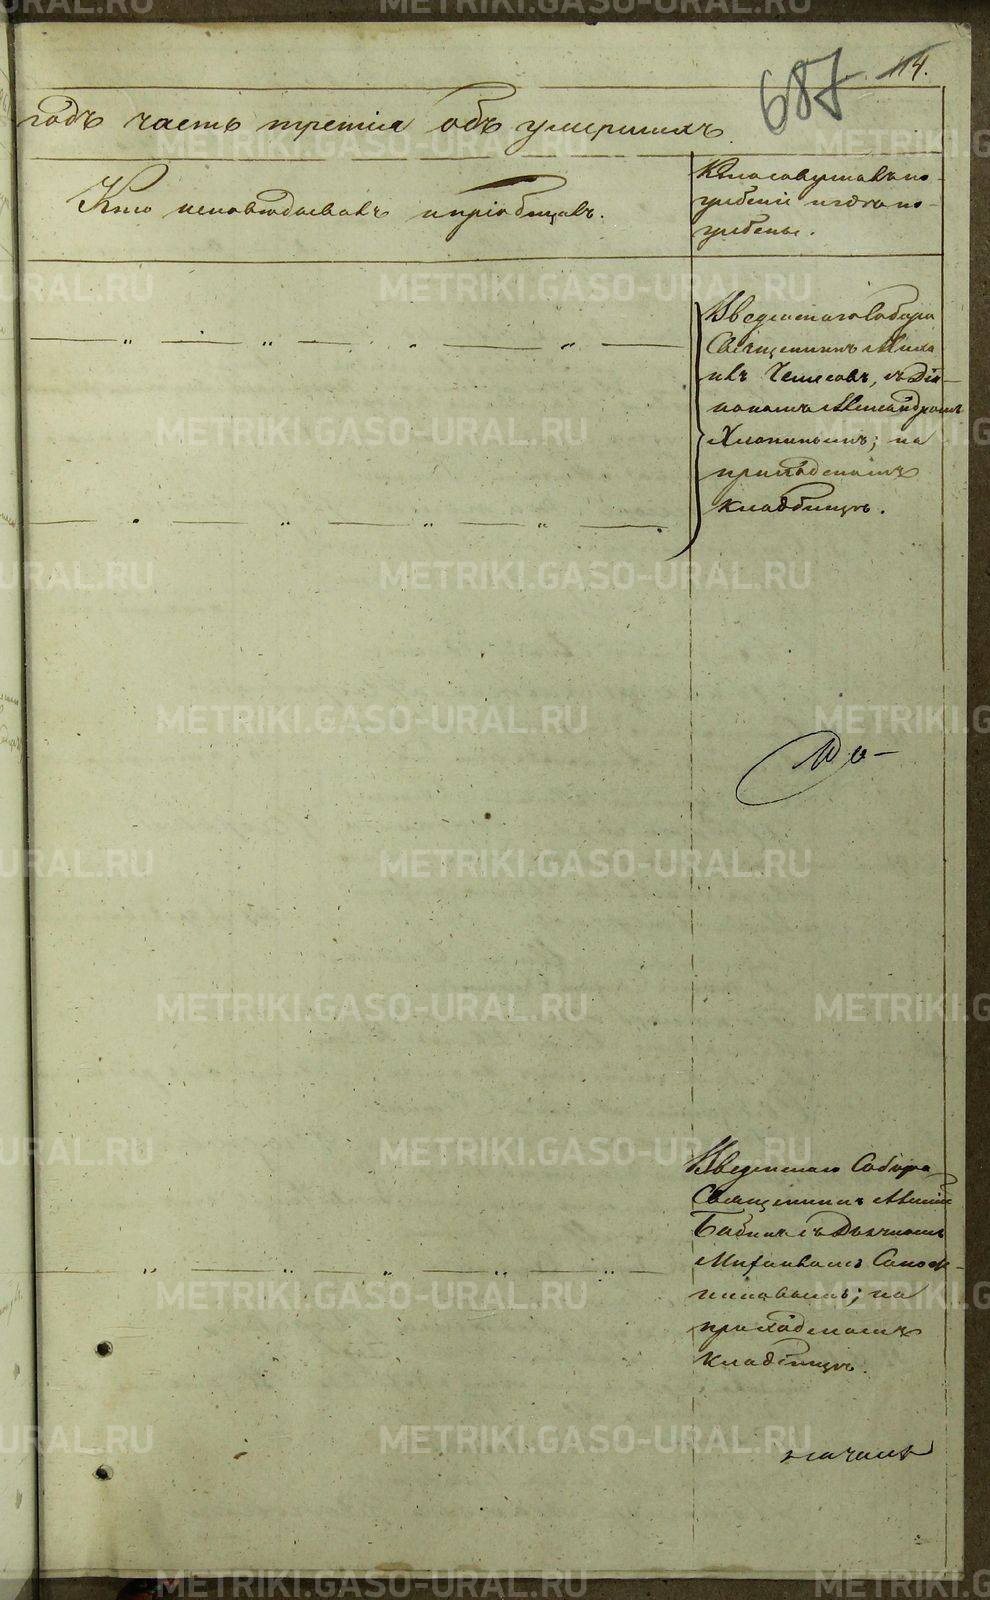 687 114.
годъ часть третія объ умершихъ
Кто исповѣдывалъ и пріобщалъ.
Кто совершалъ по-
гребеніе и гдѣ по-
гребены.
Введенскаго Собора
Священникъ Миха
илъ съ Діа-
кономъ Александромъ
Хлопинымъ; на
приходскомъ
кладбищѣ.
Введенскаго Собора
Священникъ Алексій
Бабинъ съ Дьячкомъ
Михаиломъ
на
приходскомъ
кладбищѣ.
METRIKI.GASO-URAL.RU